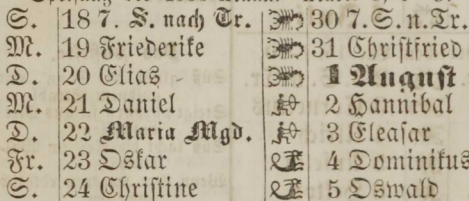 S. 18 7. S. nach Tr. 30 7. S. n. Tr.
M. 19 Friederike 31 Christfried
D. 20 Elias 1 August
M. 21 Daniel 2 Hannibal
D. 22 Maria Mgd. 3 Eleasar
Fr. 23 Oskar 4 Dominikus
S. 24 Christine 5 Oswald